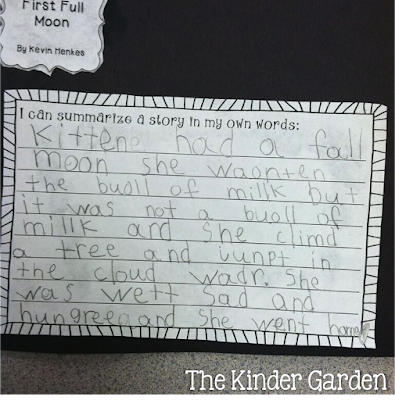 First Full
Moon
By Kevin Henkes
I can summarize a story in my own words:
Kittene had a fall
moon she waonten
the buoll of millk but
it was not a buoll of
millk and she climd
a tree and junpt in
the cloud wadr. She
was wett sad and
hungreeand she went home
The Kinder Garden